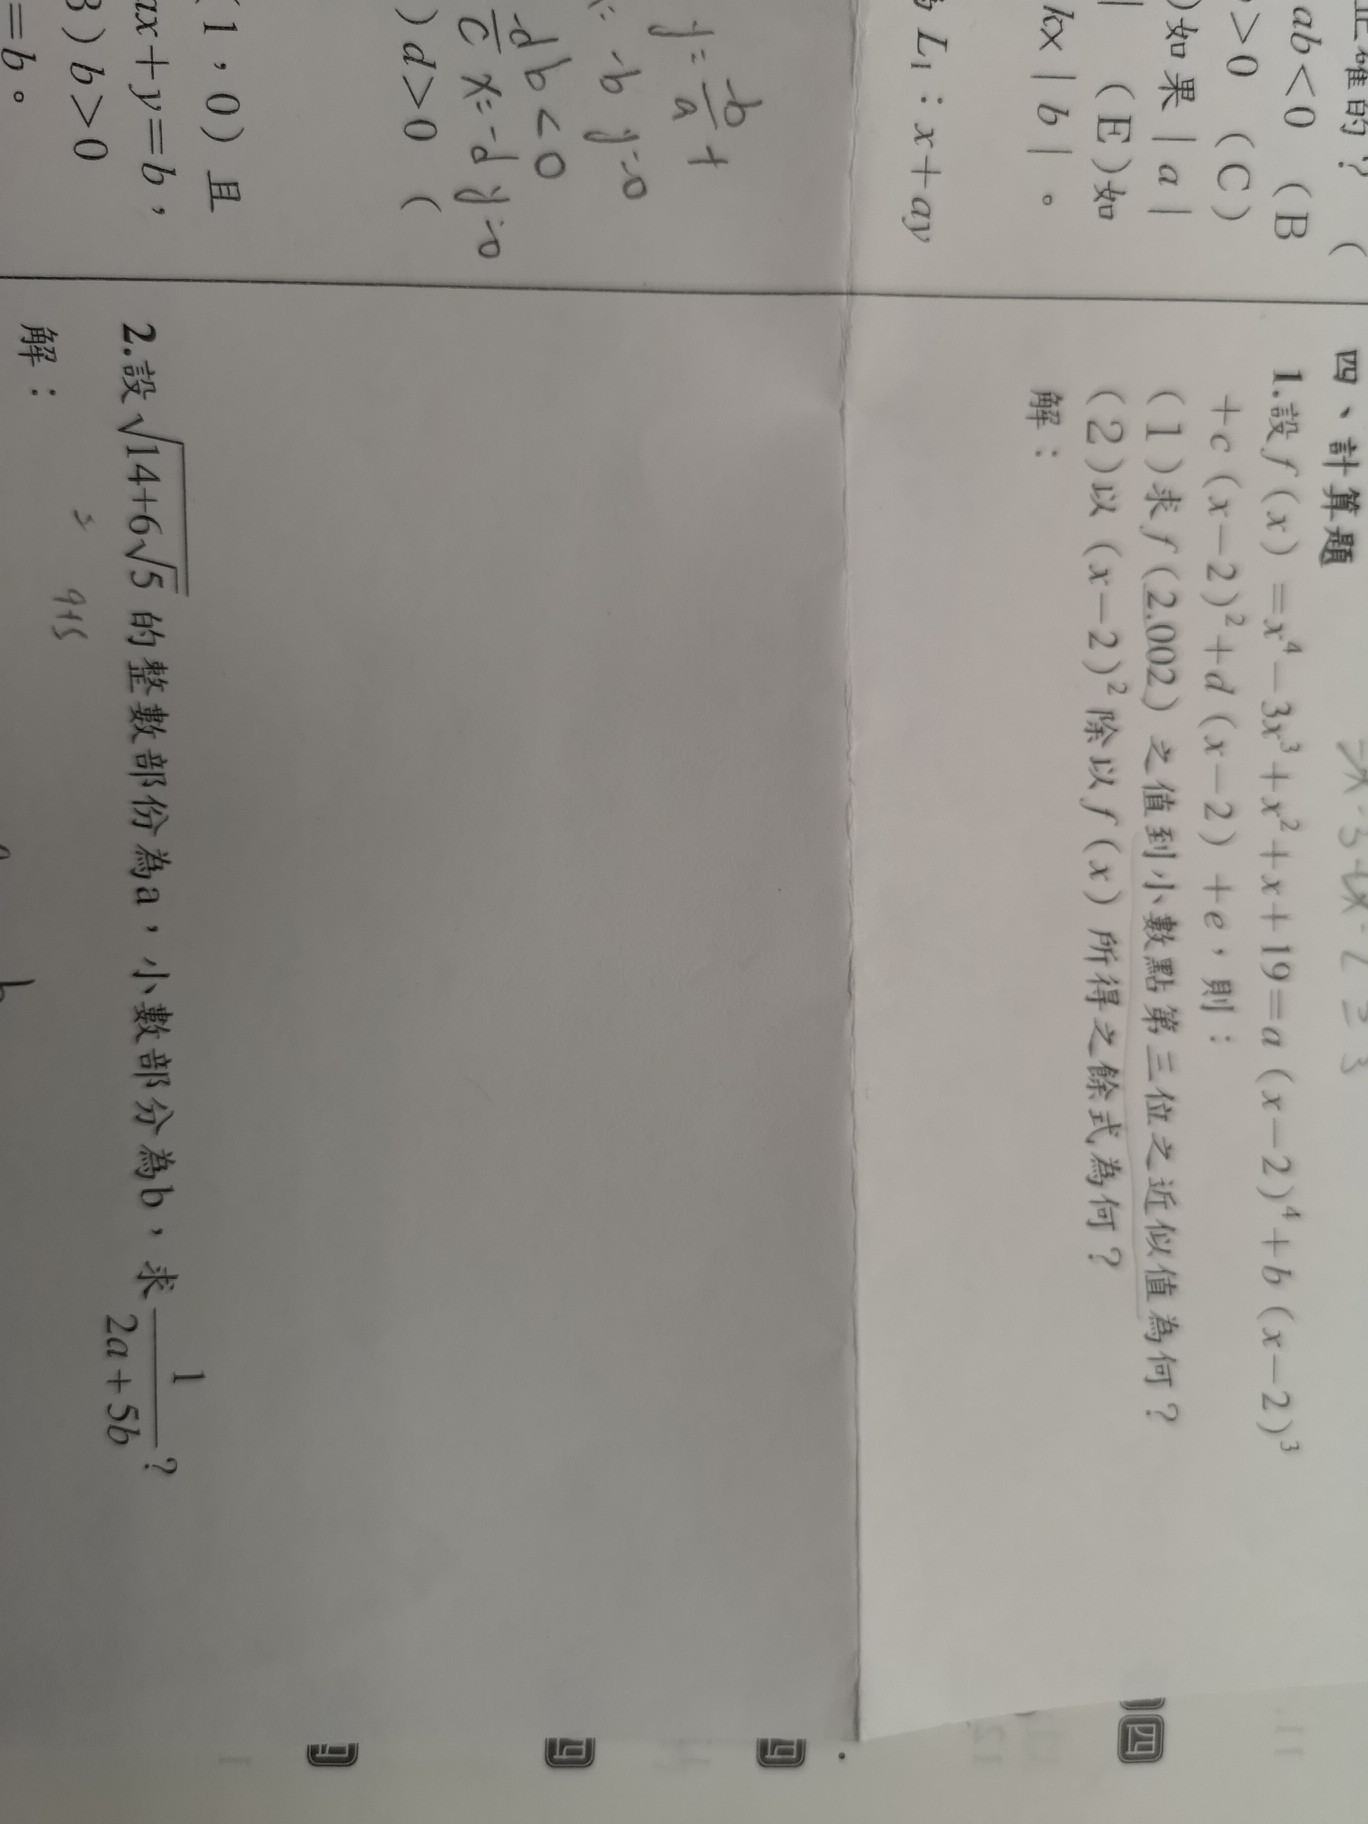 正確的？（
ab<0 （B
>0 （C）
)如果｜a｜
｜ （E)如
kx｜b｜。
L₁：x+ay
y=-b/a+
-b y=0
b<0
-d/c x=-d y=0
)d>0 （
(1，0)且
ax+y=b，
B)b>0
=b。
四、計算題
1.設f(x)=x⁴-3x³+x²+x+19=a(x-2)⁴+b(x-2)³
+c(x-2)²+d(x-2)+e，則：
(1)求f(2.002)之值到小數點第三位之近似值為何？
(2)以(x-2)²除以f(x)所得之餘式為何？
解：
2.設√(14+6√5)的整數部份為a，小數部分為b，求1/(2a+5b)？
解：
9+5
四